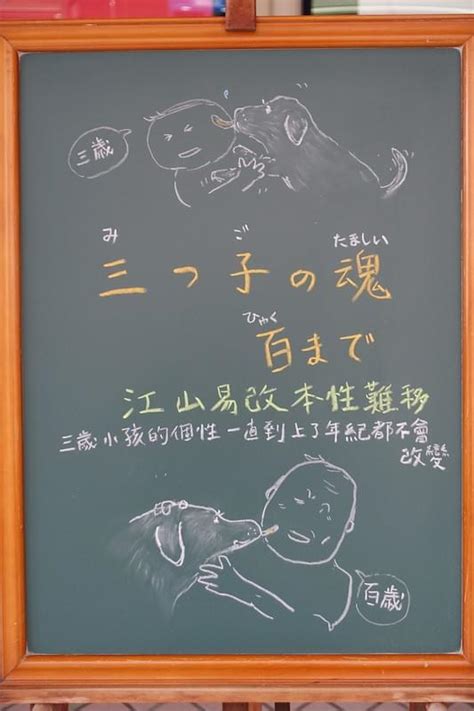 三歳
み ご たましい
三つ子の魂
ひゃく
百まで
江山易改本性難移
三歲小孩的個性一直到上了年紀都不會
改變
百歳